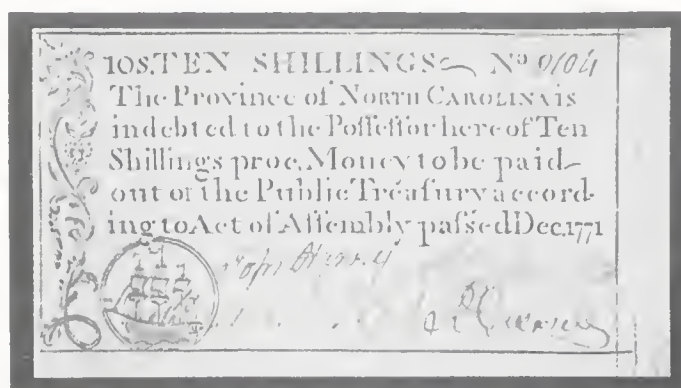 10S. TEN SHILLINGS Nº 9104
The Province of NORTH CAROLINA is
indebted to the Poſſeſſor here of Ten
Shillings proc. Money to be paid
out of the Public Treaſury accord-
ing to Act of Aſſembly paſſed Dec. 1771